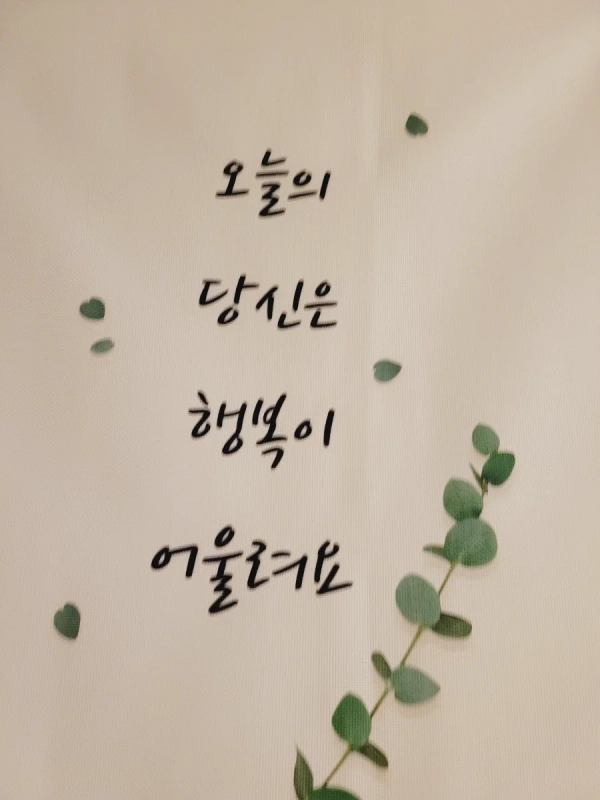 오늘의
당신은
행복이
어울려요